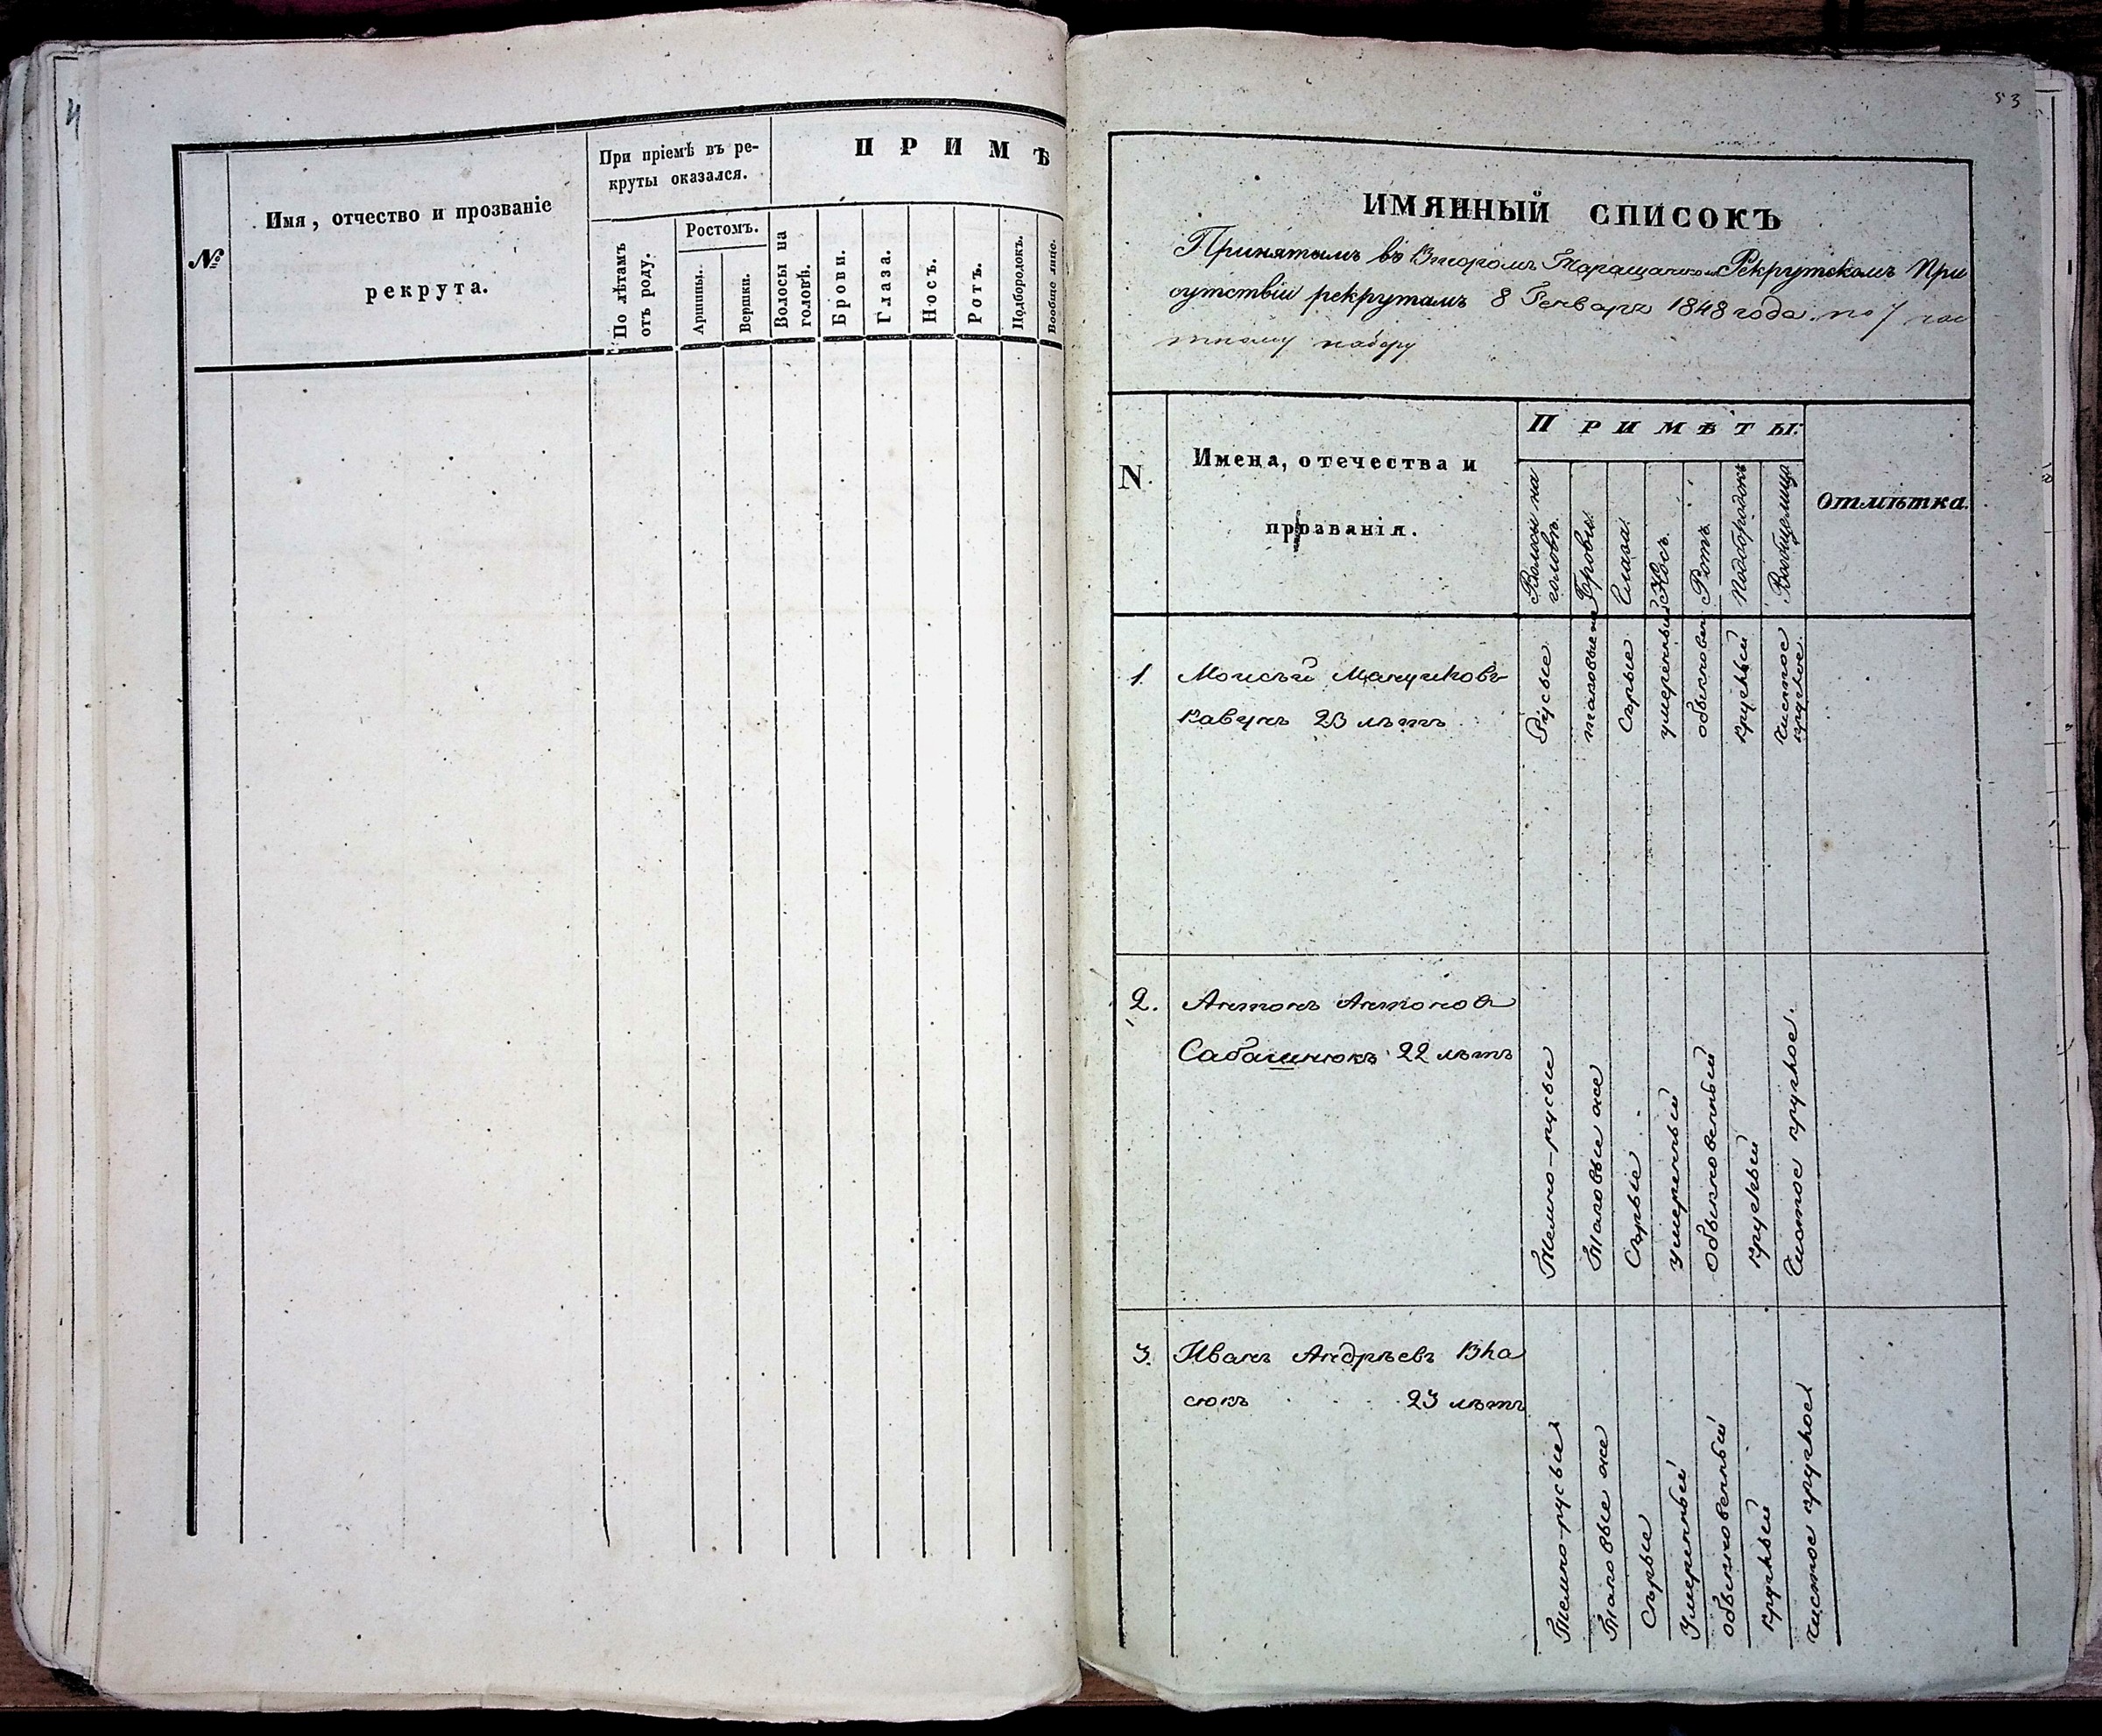 4
№
Имя, отчество и прозваніе
рекрута.
При пріемѣ въ ре-
круты оказался.
По лѣтамъ
отъ роду.
Ростомъ.
Аршины.
Вершки.
ПРИМѢ
Волосы на
головѣ.
Брови.
Глаза.
Носъ.
Ротъ.
Подбородокъ.
Вообще лице.
53
ИМЯННЫЙ СПИСОКЪ
Принятымъ во Второмъ Таращанском Рекрутскомъ При
сутствіи рекрутамъ 8 Генваря 1848 года. по 7 час
тному набору
N.
Имена, отечества и
прозванія.
ПРИМѢТЫ:
Волосы на
головѣ.
Брови.
Глаза.
Носъ.
Ротъ.
Подбородокъ
Вообще лица
Отмѣтка.
1.
Моисѣй
Кавунъ 23 лѣтъ
Русые
таковые же
Сѣрые
умеренный
обыкновен
круглый
чистое
круглое.
2.
Антонъ Антонов
Сабашнюкъ 22 лѣтъ
Темно-русые
Таковые же
Сѣрые
умеренный
Обыкновенный
круглый
Чистое круглое.
3.
Иванъ Андрѣевъ Вла
сюкъ 23 лѣтъ
Темно-русые
Таковые же
Сѣрые
Умеренный
обыкновенный
круглый
чистое круглое